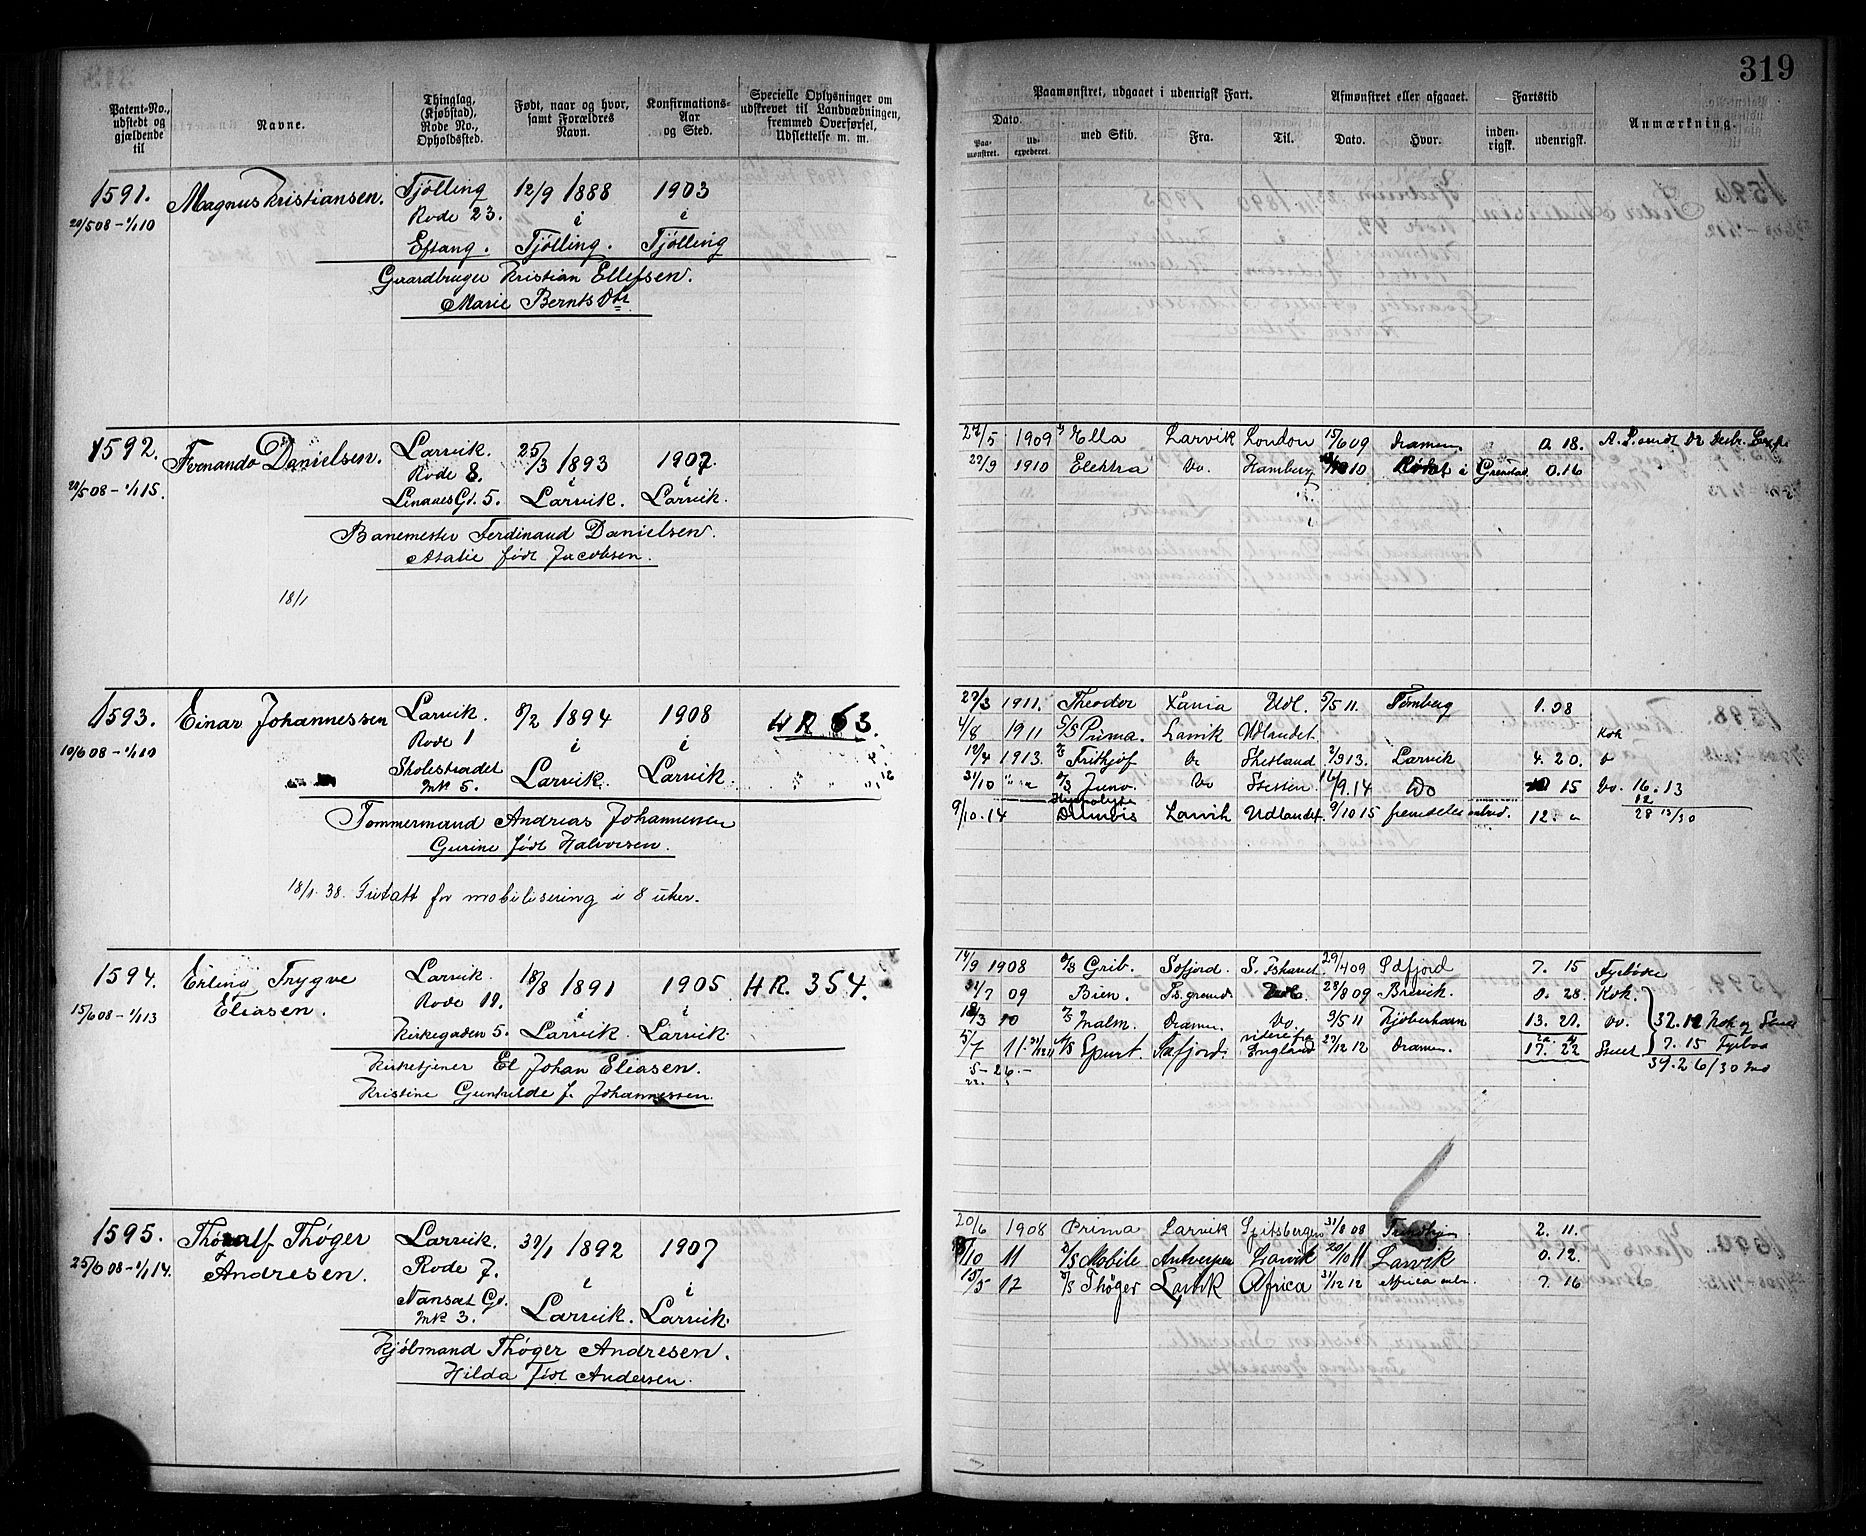 319
Patent-No., udstedt og gjældende til
Navne.
Thinglag, (Kjøbstad), Rode No., Opholdssted.
Født, naar og hvor, samt Forældres Navn.
Konfirmations-Aar og Sted.
Specielle Oplysninger om udskrevet til Landvæbningen, fremmed Overførsel, Udslettelse m. m.
Paamønstret, udgaaet i udenrigsk Fart.
Dato.
Paa-mønstret.
Ud-expederet.
med Skib.
Fra.
Til.
Afmønstret eller afgaaet.
Dato.
Hvor.
Fartstid
inden-rigsk.
udenrigsk.
Anmærkning.
1591. Magnus Kristiansen. Tjølling 12/9 1888 1903
20/5 08 - 1/1 10 Rode 23. i i
Eftang. Tjølling. Tjølling
Gaardbruger Kristian Ellefsen.
Marie Bernts Dtr
1592. Fernando Danielsen. Larvik. 25/3 1893 1907.
20/5 08 - 1/1 15. Rode 8. i i
Gd. 5. Larvik. Larvik.
Banemester Ferdinand Danielsen.
Asalie født Jacobsen.
18/1
27/5 1909 Ella Larvik London 15/6 09 Dramen 0 18.
27/9 1910 Elektra Do. Hamberg 10 i 0.16
1593. Einar Johannessen Larvik. 8/2 1894 1908 HR 63.
10/6 08 - 1/1 10 Rode 1 i i
Skolestrædet Larvik. Larvik.
Mk 5.
Tømmermand Andreas Johannessen
Gurine født Halvorsen.
18/1. 38. Fritatt for mobilisering i 8 uker.
27/3 1911. Theodor Xania Udl. 5/5 11. Tønsberg 1. 08
4/8 1911 S/S Prima. Larvik Udlandet. Kok
12/4 1913. Frithjof Do Shetland 2/9 13. Larvik 4. 20.
31/10 Juno. Do Stettin. 16/9. 14 Do 15 Do. 16. 13
12
9/10. 14 Larvik Udlandet 9/10 15 fremdeles ombord. 12. 28 13/30
1594. Erling Trygve Larvik. 18/8 1891 1905 HR. 354.
15/6 08 - 1/1 13 Eliasen. Rode 11. i i
Kirkegaden 5. Larvik. Larvik.
Kirketjener El Johan Eliasen.
Kristine Gunhilde f. Johannessen.
14/9 1908 Grib. S. Ishavet 29/4 09 7. 15 Fyrbøter
31/7 09 Brien. 28/8 09 Brevik. 0. 28. Kok.
18/3 10 Malm. Dramn. Do. 9/5 11 Kjøbenhavn 13. 21. Do. 32. 12 Kok og
5/7 11. Spurt England 27/12 12 Dramen. 17. 22 7. 15
5 - 26. - 39. 26/30
1595. Thoralf Thøger Larvik. 1892 1907
25/6 08 - 1/1 14. Andresen. Rode 7. i i
Nansæt Gd. Larvik. Larvik.
Mk 3.
Kjøbmand Thøger Andresen.
Hilda født Andersen.
20/6 1908 Prima Larvik Spitsbergen 31/8 08 2. 11.
10 11 S/S Mobile Antwerpen Larvik 20/10 11 Larvik 0. 12.
15/5 12 S/S Thøger Larvik Africa 31/12 12 Africa 7. 16